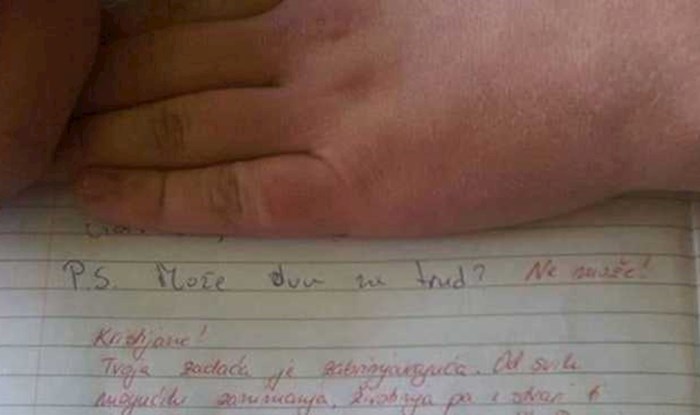 P.S. Može dva za trud? Ne može!
Kristijane!
Tvoja zadaća je zabrinjavajuća. Od svih
mogućih zanimanja, životnja pa i stvari